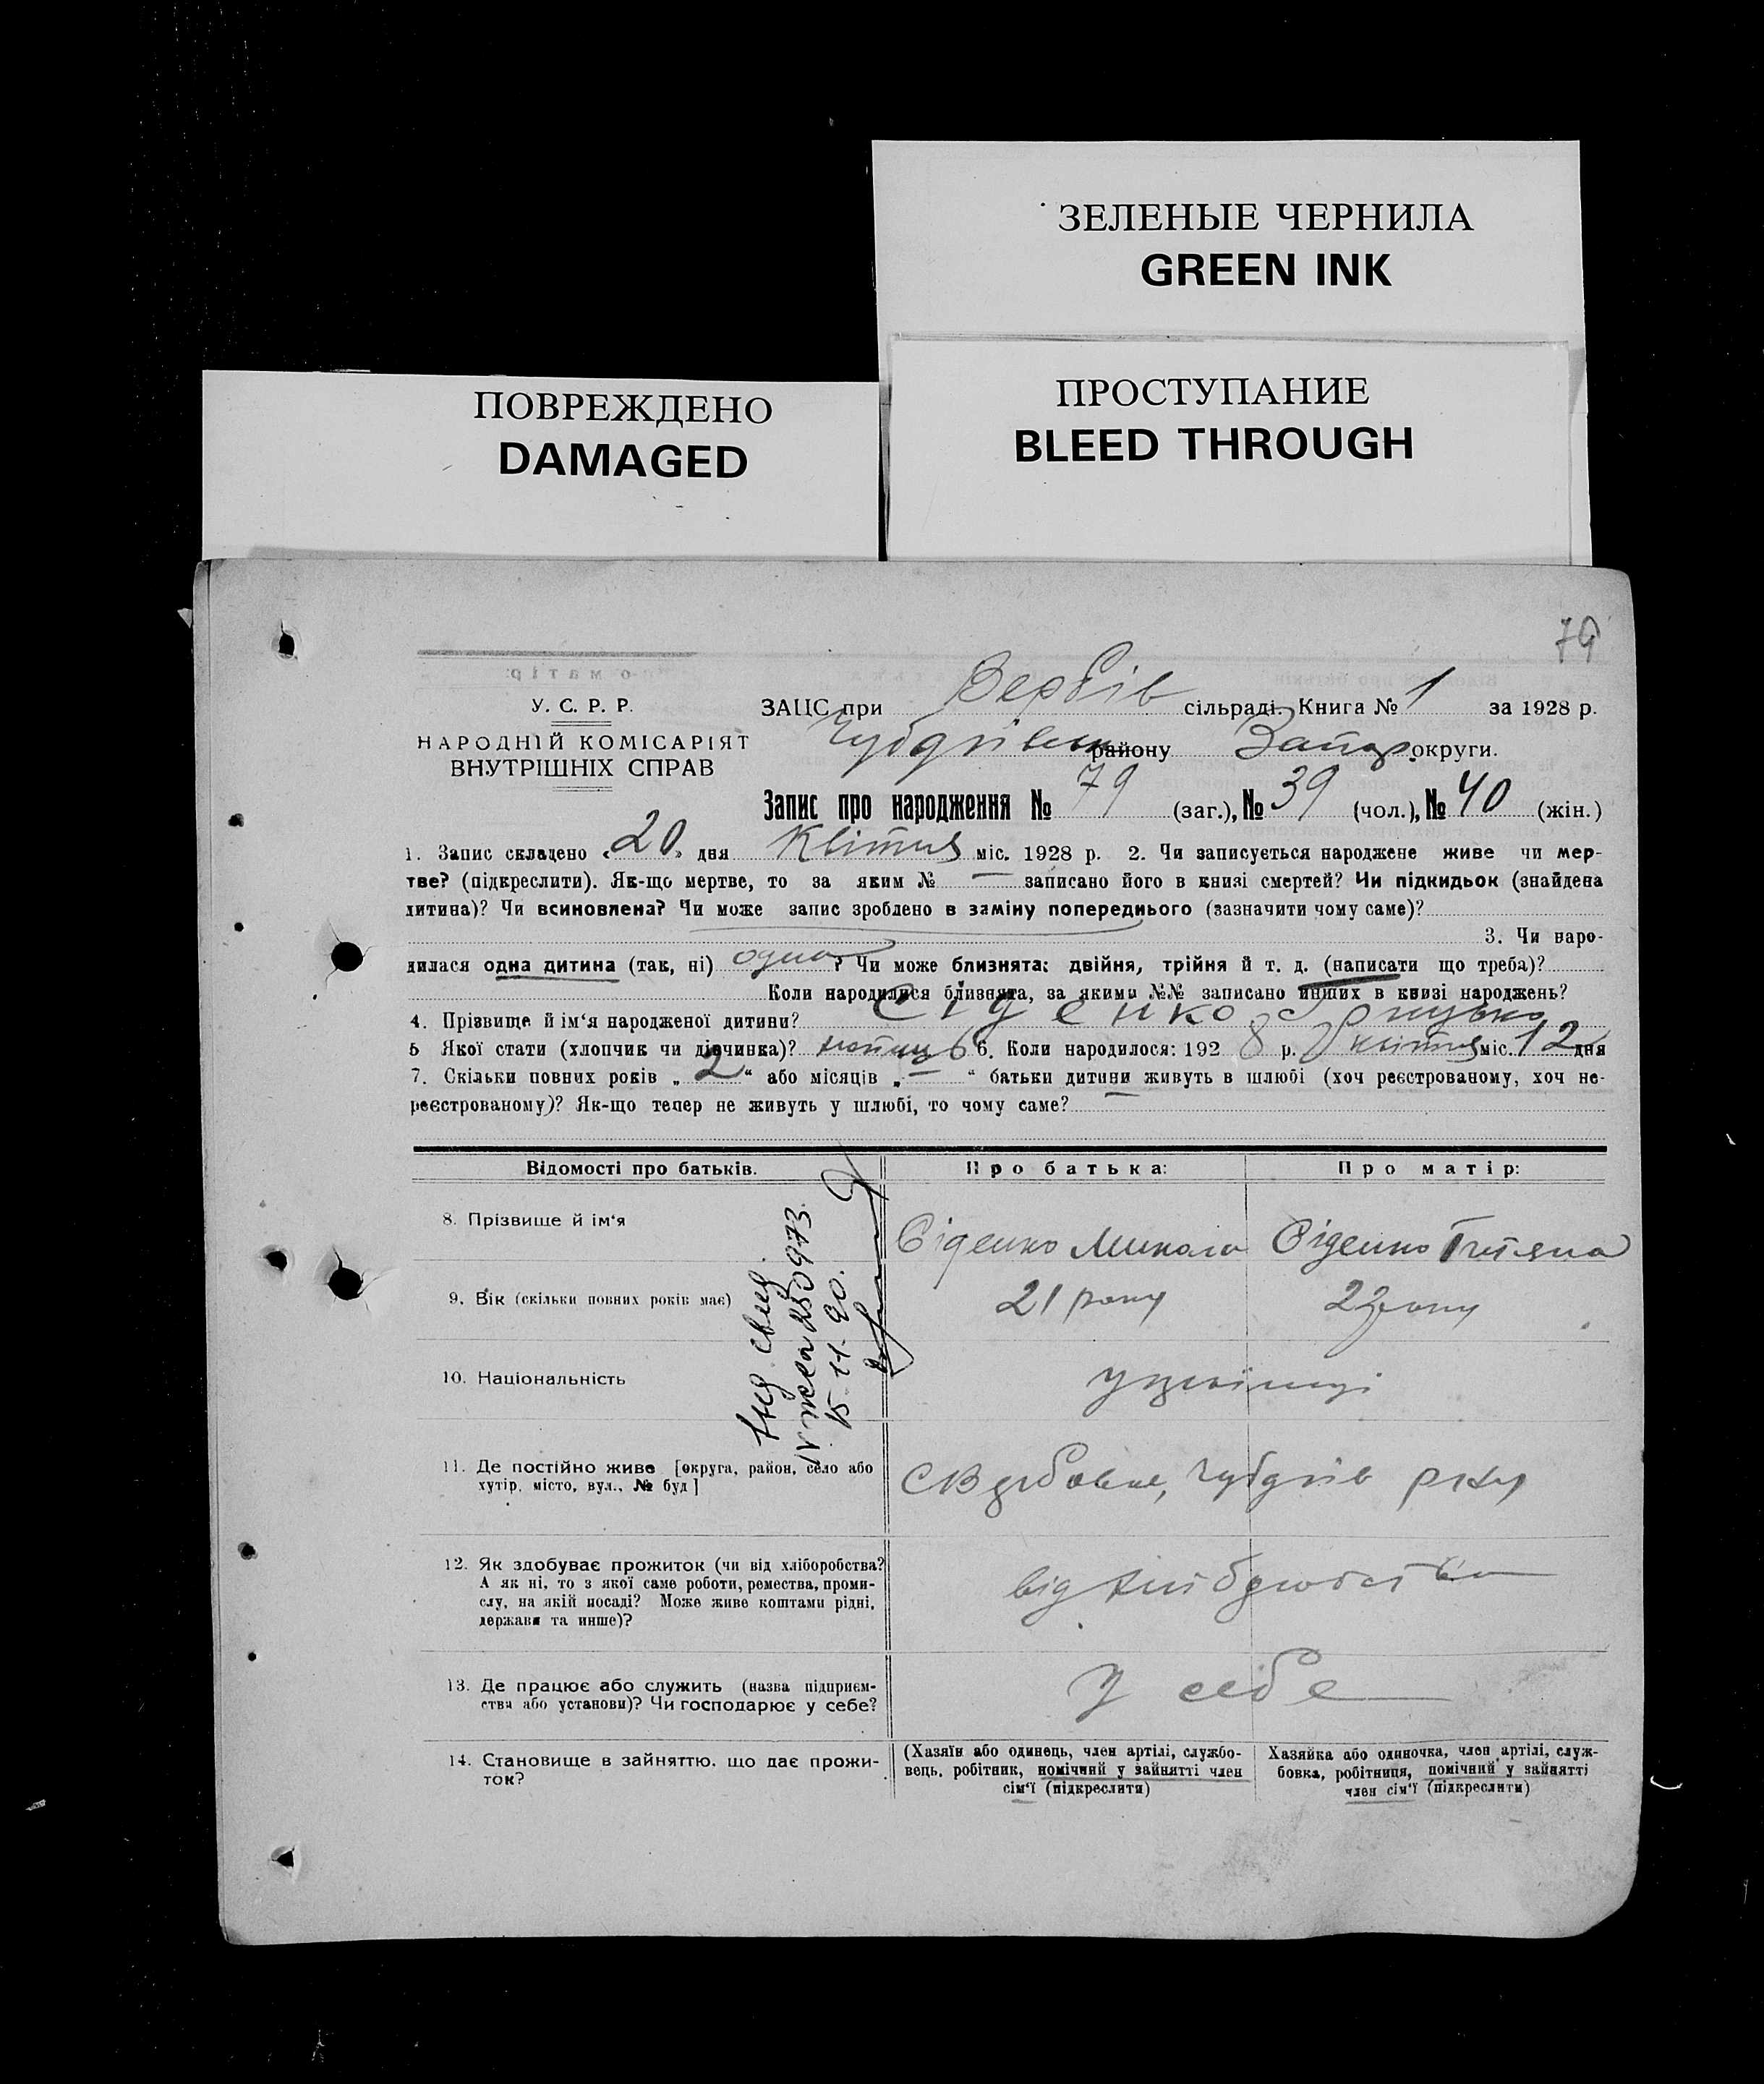 ЗЕЛЕНЫЕ ЧЕРНИЛА
GREEN INK
ПОВРЕЖДЕНО
DAMAGED
ПРОСТУПАНИЕ
BLEED THROUGH
79
У. С. Р. Р.
НАРОДНІЙ КОМІСАРІЯТ
ВНУТРІШНІХ СПРАВ
ЗАЦС при Вербів сільраді. Книга № 1 за 1928 р.
району Запор. округи.
Запис про народження № 79 (заг.), № 39 (чол.), № 40 (жін.)
1. Запис складено „20“ дня Квітня міс. 1928 р. 2. Чи записується народжене живе чи мер-
тве? (підкреслити). Як-що мертве, то за яким № — записано його в книзі смертей? Чи підкидьок (знайдена
дитина)? Чи всиновлена? Чи може запис зроблено в заміну попереднього (зазначити чому саме)?
3. Чи наро-
дилася одна дитина (так, ні) одна ? Чи може близнята: двійня, трійня й т. д. (написати що треба)?
Коли народилися близнята, за якими №№ записано инших в книзі народжень?
4. Прізвище й ім‘я народженої дитини? Сіденко
5 Якої стати (хлопчик чи дівчинка)? 6. Коли народилося: 1928 р. квітня міс. 12 дня
7. Скільки повних років „2“ або місяців „—“ батьки дитини живуть в шлюбі (хоч реєстрованому, хоч не-
реєстрованому)? Як-що тепер не живуть у шлюбі, то чому саме?
Відомості про батьків.
Про батька:
Про матір:
8. Прізвище й ім‘я
Сіденко Микола
Сіденко Тетяна
9. Вік (скільки повних років має)
21 року
22 року
10. Національність
українці
11. Де постійно живе [округа, район, село або
хутір, місто, вул., № буд]
12. Як здобуває прожиток (чи від хліборобства?
А як ні, то з якої саме роботи, ремества, проми-
слу, на якій посаді? Може живе коштами рідні,
держави та инше)?
від хліборобства
13. Де працює або служить (назва підприєм-
ства або установи)? Чи господарює у себе?
У себе
14. Становище в зайняттю, що дає прожи-
ток?
(Хазяїн або одинець, член артілі, службо-
вець, робітник, помічний у зайнятті член
сім‘ї (підкреслити)
Хазяйка або одиночка, член артілі, служ-
бовка, робітниця, помічний у зайнятті
член сім‘ї (підкреслити)